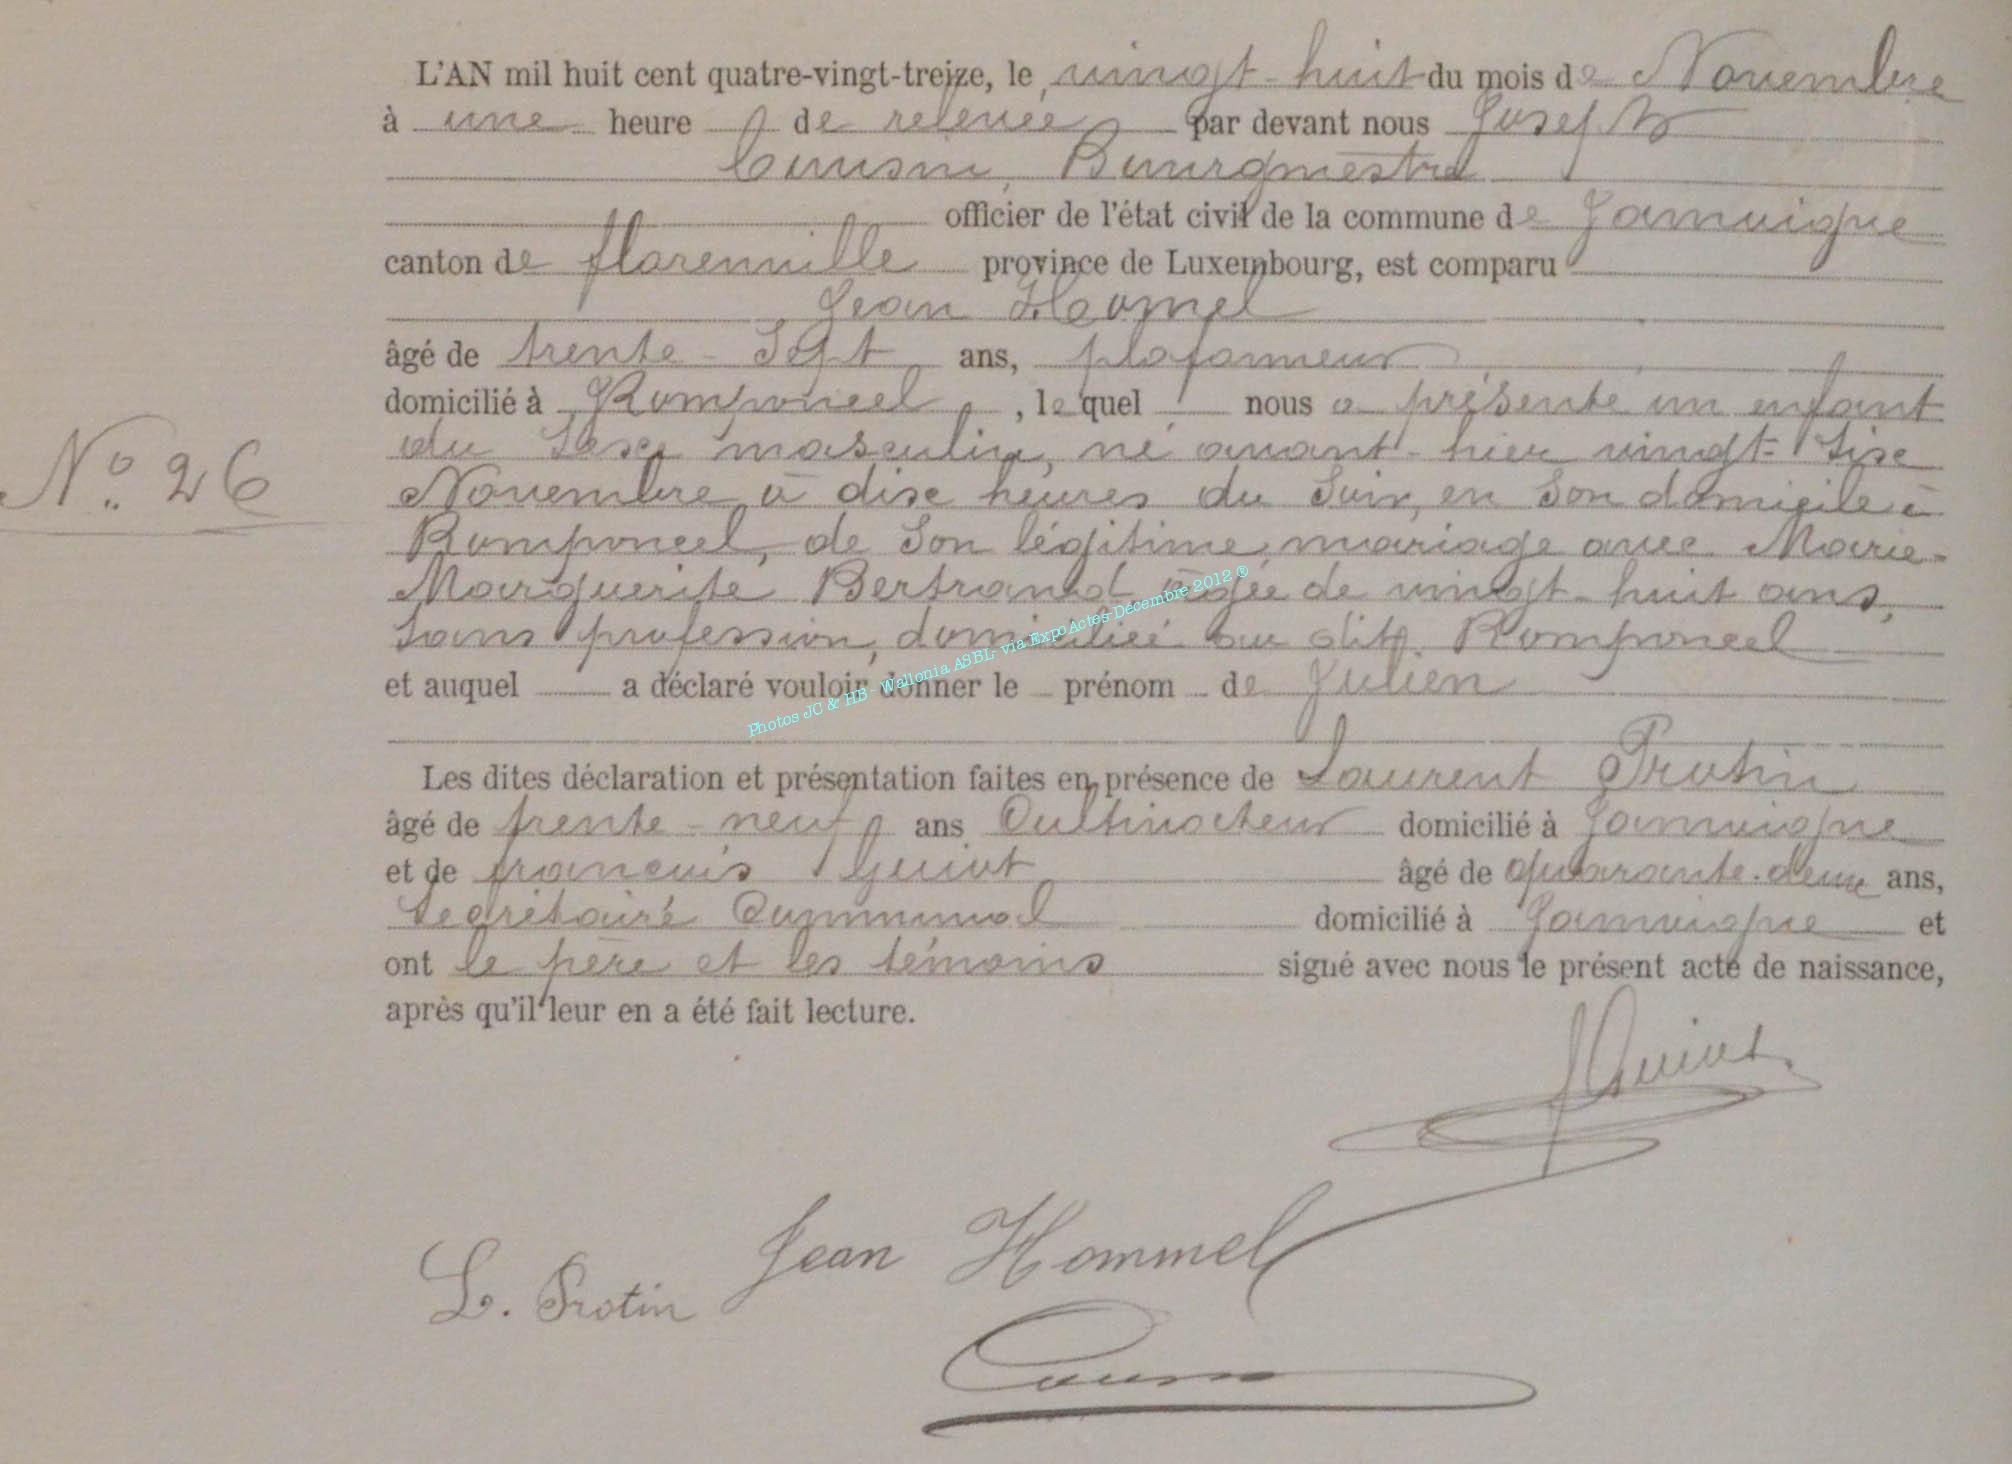 L'AN mil huit cent quatre-vingt-treize, le vingt-huit du mois de Novembre
à une heure de relevée par devant nous Joseph
Cousin, Bourgmestre
officier de l'état civil de la commune de Jamoigne
canton de florenville province de Luxembourg, est comparu
Jean Hommel
âgé de trente-Sept ans, plafonneur
domicilié à Romponcel, lequel nous a présenté un enfant
du Sexe masculin, né avant-hier vingt-Six
N° 26
Novembre à dix heures du Soir, en Son domicile à
Romponcel, de Son légitime mariage avec Marie-
Marguerite Bertrand âgée de vingt-huit ans,
Sans profession, domiciliée au dit Romponcel
et auquel a déclaré vouloir donner le prénom de Julien
Photos JC & HB - Wallonia ASBL- via ExpoActes-Décembre 2012 ®
Les dites déclaration et présentation faites en présence de Laurent Protin
âgé de trente-neuf ans Cultivateur domicilié à Jamoigne
et de françois Guiot âgé de quarante-deux ans,
Secrétaire Communal domicilié à Jamoigne et
ont le père et les témoins signé avec nous le présent acte de naissance,
après qu'il leur en a été fait lecture.
Guiot
Jean Hommel
L. Protin
Cousin